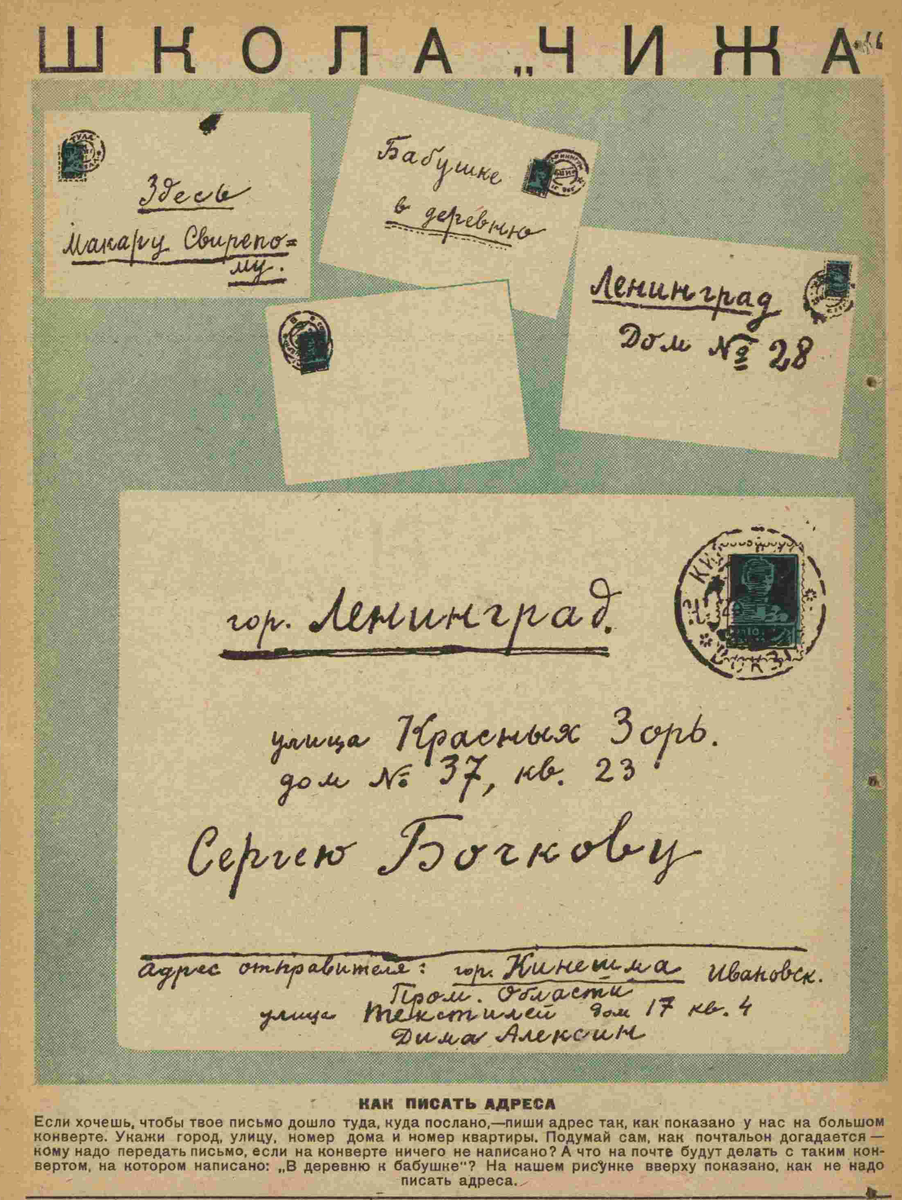 ШКОЛА „ЧИЖА“
ТУЛА
Здесь
Макару Свирепо=
му.
Бабушке
в деревню
Ленинград
Дом № 28
гор. Ленинград.
улица Красных Зорь.
дом № 37, кв. 23
Сергею Бочкову
адрес отправителя: гор. Кинешма Ивановск.
Пром. Области
улица Текстилей дом 17 кв. 4
Дима Алексин
КАК ПИСАТЬ АДРЕСА
Если хочешь, чтобы твое письмо дошло туда, куда послано,—пиши адрес так, как показано у нас на большом
конверте. Укажи город, улицу, номер дома и номер квартиры. Подумай сам, как почтальон догадается —
кому надо передать письмо, если на конверте ничего не написано? А что на почте будут делать с таким кон-
вертом, на котором написано: „В деревню к бабушке“? На нашем рисунке вверху показано, как не надо
писать адреса.